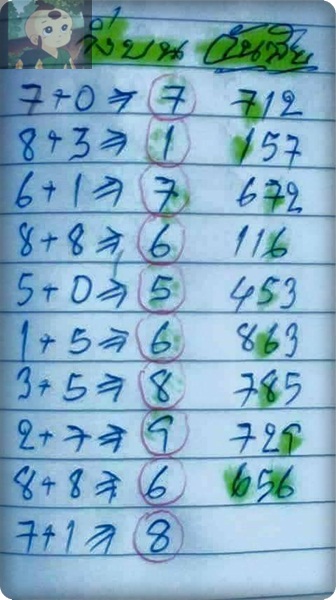 วิ่งบน วันเสีย
7+0 ⇒ 7 712
8+3 ⇒ 1 157
6+1 ⇒ 7 672
8+8 ⇒ 6 116
5+0 ⇒ 5 453
1+5 ⇒ 6 863
3+5 ⇒ 8 785
2+7 ⇒ 9 729
8+8 ⇒ 6 656
7+1 ⇒ 8